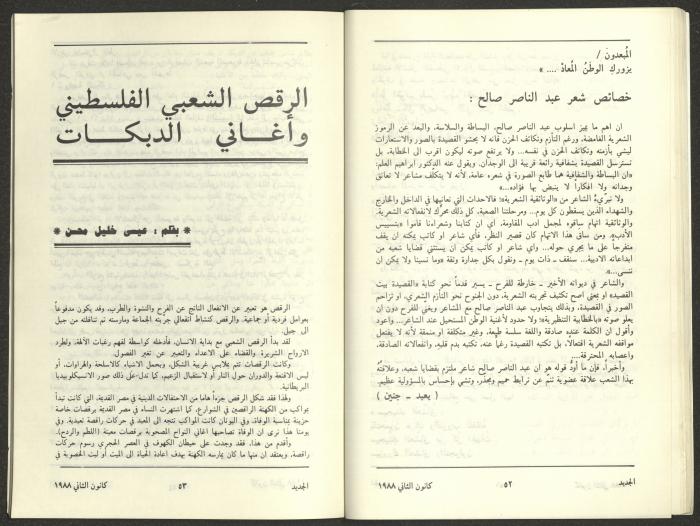 المُبعدونَ /
يزوركِ الوطنُ المُعادْ .... »
خصائص شعر عبد الناصر صالح :
ان اهم ما يميز اسلوب عبد الناصر صالح، البساطة والسلاسة، والبعد عن الرموز
الشعرية الغامضة، ورغم التأزم وتكاثف الحزن فانه لا يحشو القصيدة بالصور والاستعارات
ليشي بأزمته وتكاثف الحزن في نفسه... ولا يرتفع صوته ليكون اقرب الى الخطابة، بل
تسترسل القصيدة بشفافية رائعة قريبة الى الوجدان. ويقول عنه الدكتور ابراهيم العلم:
«ان البساطة والشفافية هما طابع الصورة في شعره عامة، لأنه لا يتكلف مشاعر لا تعانق
وجدانه ولا افكاراً لا ينبض بها فؤاده...»
ولا نبرّيء الشاعر من «الوثائقية الشعرية»؛ فالاحداث التي نعانيها في الداخل والخارج
والشهداء الذين يسقطون كل يوم... ومرحلتنا الصعبة، كل ذلك محرك لانفعالاته الشعرية.
والوثائقية اتهام ساقوه لمجمل ادب المقاومة، أي ان كتابنا وشعراءنا قاموا «بتسييس
الأدب»، ومن ساق هذا الاتهام كان قصير النظر، فأي شاعر او كاتب يمكنه ان يقف
متفرجاً على ما يجري حوله... واي شاعر او كاتب يمكن ان يستثني قضايا شعبه من
ابداعاته الادبية... سنقف ـ ذات يوم ـ ونقول بكل جدارة وثقة «ما نسينا ولا يمكن ان
ننسى...»
والشاعر في ديوانه الأخير ـ خارطة للفرح ـ يسير قدماً نحو كتابة «القصيدة بيت
القصيد» او بمعنى اصح تكثيف تجربته الشعرية، دون الجنوح نحو التأزم الشعري، او تزاحم
الصور في القصيدة، وبذلك يتجاوب عبد الناصر صالح مع المشاعر ويغنّي للفرح دون ان
يعلو صوته «بالخطابية التنظيرية»؛ ولا حدود لأغنية الوطن المستحيل عند الشاعر... واعود
وأقول ان الكلمة عنده صادقة واللغة سلسة طيعة، وغير متكلفة او منمقة لأنه لا يفتعل
مواقفه الشعرية افتعالاً، بل تكتبه القصيدة رغما عنه، تكتبه بدم قلبه، وانفعالاته الصادقة،
واعصابه المحترقة...
وأخيراً، فإن ما أودّ قوله هو ان عبد الناصر صالح شاعر ملتزم بقضايا شعبه، وعلاقته
بهذا الشعب علاقة عضوية تنمّ عن ترابط حميم ومبرّر، وتشي بإحساس بالمسؤولية عظيم.
( يعبد ـ جنين )
الجديد
٥٢
كانون الثاني ١٩٨٨
الرقص الشعبي الفلسطيني
وأغاني الدبكات
* بقلم : عيسى خليل محسن *
الرقص هو تعبير عن الانفعال الناتج عن الفرح والنشوة والطرب، وقد يكون مدفوعاً
بعوامل فردية أو جماعية. والرقص كنشاط انفعالي جربته الجماعة ومارسته ثم تناقلته من جيل
الى جيل.
لقد بدأ الرقص الشعبي مع بداية الانسان، فأدخله كواسطة لفهم رغبات الآلهة، ولطرد
الارواح الشريرة والقضاء على الاعداء والتعبير عن تغير الفصول.
وكانت الرقصات تتم بملابس غريبة الشكل، وبحمل الاشياء كالاسلحة والهراوات، أو
لبس الاقنعة والدوران حول النار أو لاستقبال الزعيم، كما تدل على ذلك صور الانسيكلوبيديا
البريطانية.
ولهذا فقد شكل الرقص جزءاً هاماً من الاحتفالات الدينية في مصر القديمة، التي كانت تبدأ
بمواكب من الكهنة الراقصين في الشوارع، كما اشتهرت النساء في مصر القديمة برقصات خاصة
حزينة بمناسبة الوفاة. وفي اليونان كانت المواكب تتجه الى المعبد في حركات راقصة تعبدية. وفي
يومنا هذا نرى ان الوفاة تصاحبها اغاني النواح المصحوبة برقصات معينة (اللطم والردح).
وأقدم من هذا، فقد وجدت على حيطان الكهوف في العصر الحجري رسوم حركات
راقصة، ويعتقد ان منها ما كان يمارسه الكهنة بهدف اعادة الحياة الى الميت أو لبث الخصوبة في
الجديد
٥٣
كانون الثاني ١٩٨٨